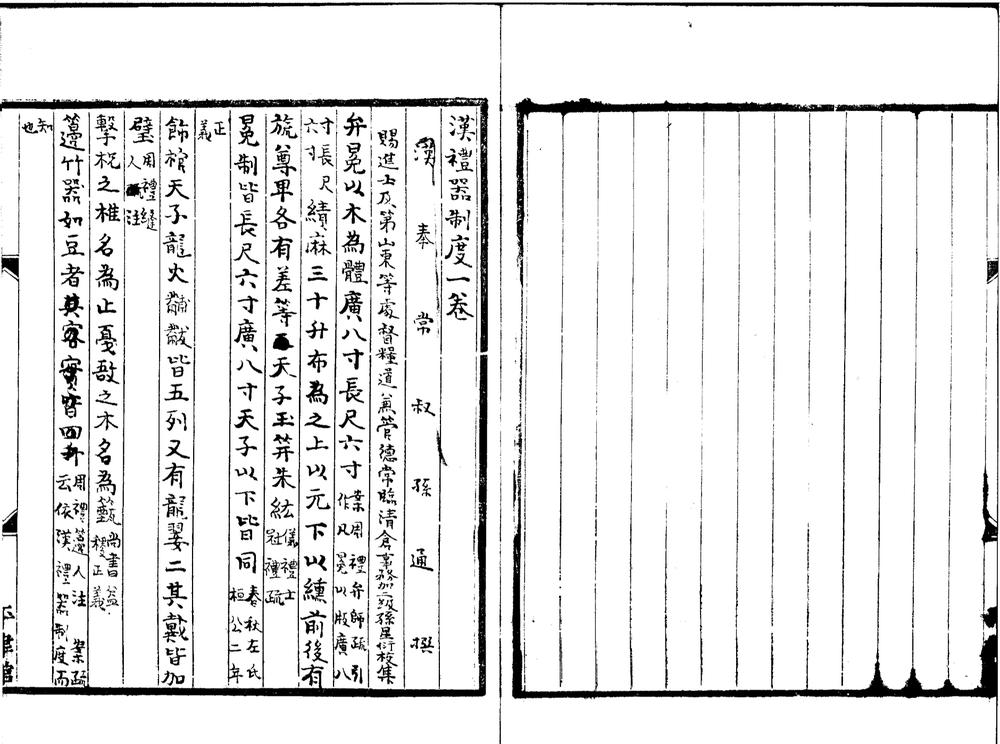 漢禮器制度一卷
漢奉常叔孫通撰
賜進士及第山東等處督糧道兼管德常臨清倉事務加二級孫星衍校集
弁冕以木為體廣八寸長尺六寸案周禮弁師疏引作凡冕以版廣八
寸長尺六寸績麻三十升布為之上以元下以纁前後有
旒尊卑各有差等天子玉笄朱紘儀禮士冠禮疏
冕制皆長尺六寸廣八寸天子以下皆同春秋左氏桓公二年
正義
飾棺天子龍火黼黻皆五列又有龍翣二其戴皆加
璧周禮縫人注
擊柷之椎名為止戛敔之木名為籈尚書益稷正義
籩竹器如豆者其容實皆四升周禮籩人注 案疏云依漢禮器制度而
知也
平津館